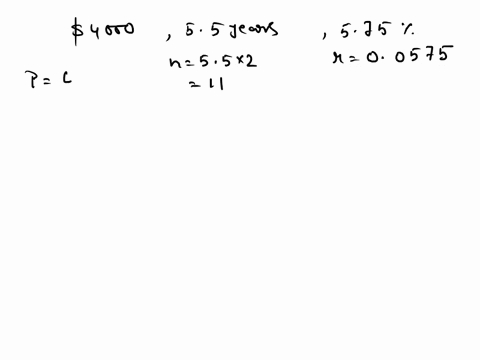 $4000 , 5.5 years , 5.75 %
n = 5.5 × 2 r = 0.0575
P = C = 11